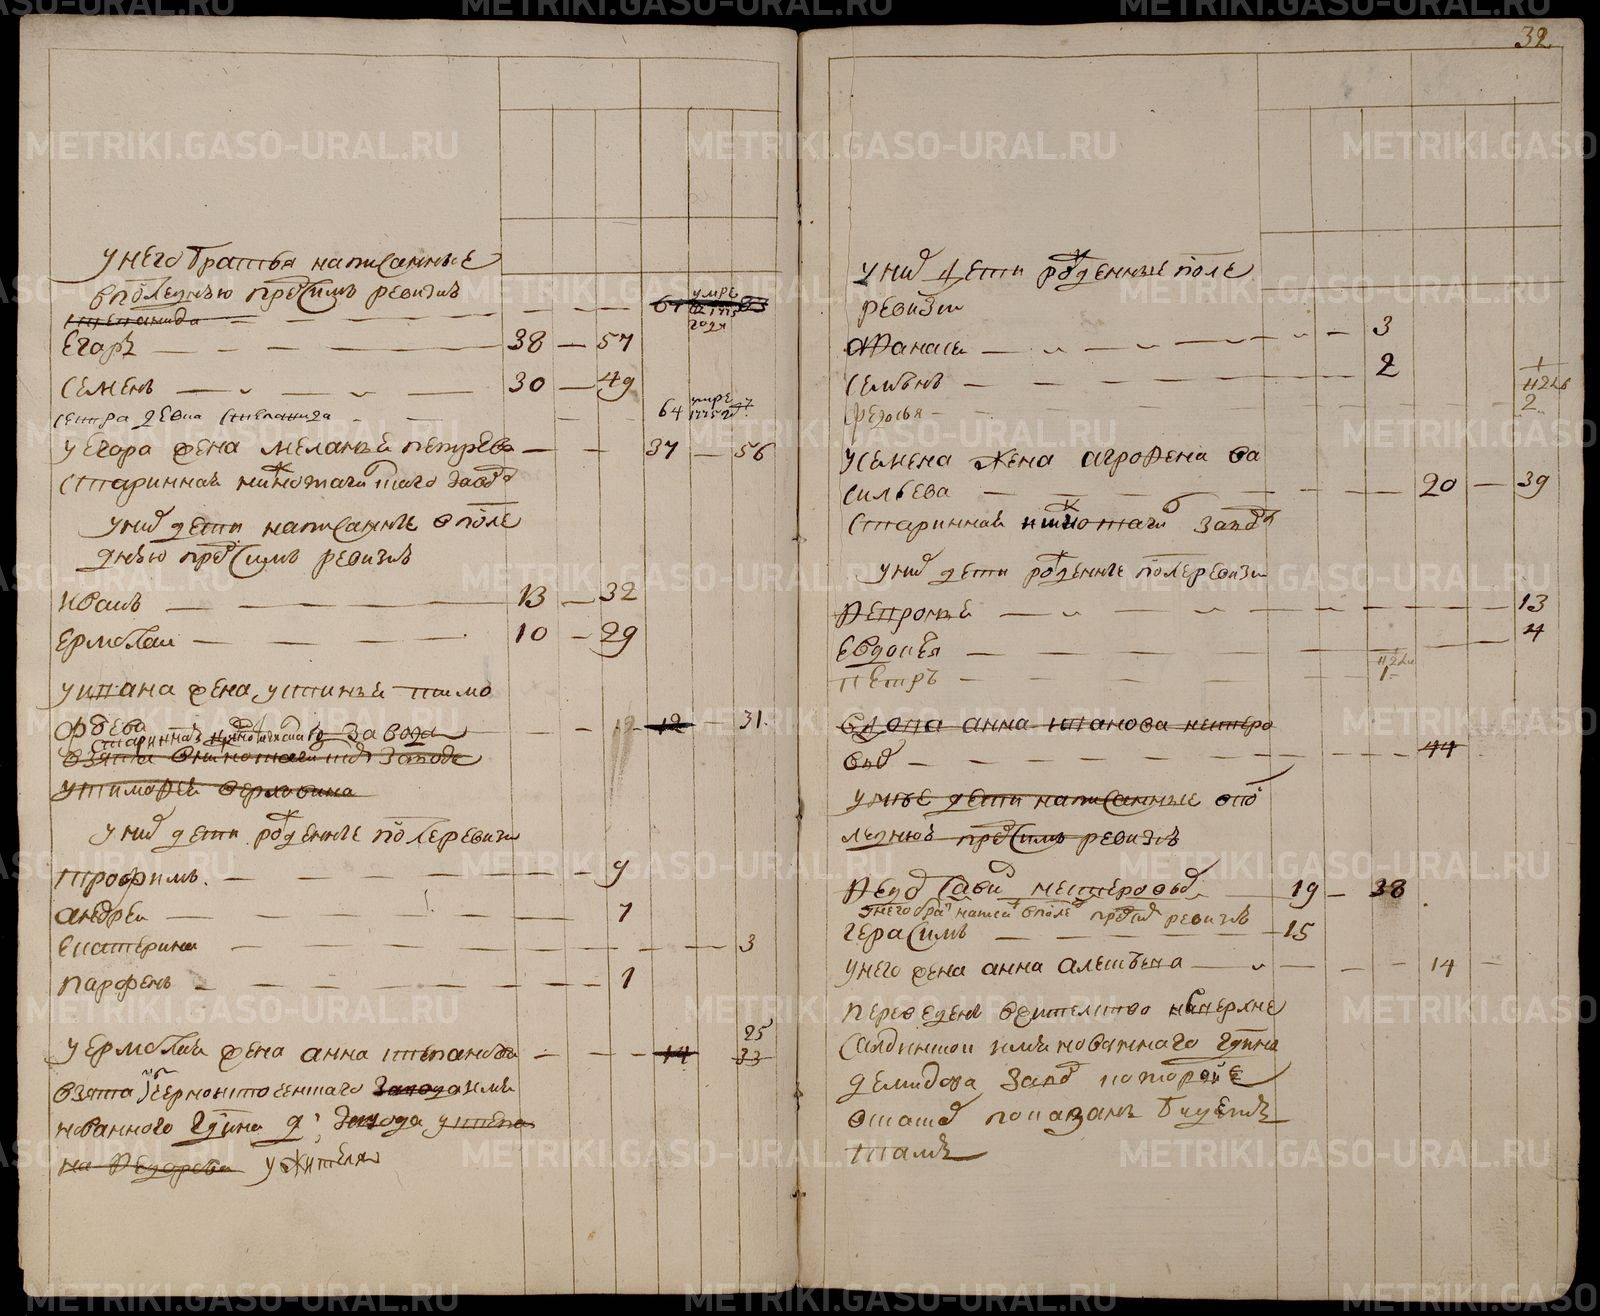 32
у него братья написанные
в последнюю пред сим ревизию
степанида — 61 умре в 1775 году 83
Егоръ — 38 — 57
Семенъ — 30 — 49
сестра девка степанида — 64 умре 1775 г.
у Егора жена меланья петрова — 37 — 56
старинная нижнотагилскаго завода
у них дети написанные в после
днюю пред сим ревизию
иванъ — 13 — 32
Ермолаи — 10 — 29
у ивана жена устинья тимо
фѣева — 12 — 31
старинная нижнотагилскаго завода
взята в нижнотагилском заводе
у тимофея
у них дети рожденные после ревизии
трофимъ — 9
андреи — 7
Екатерина — 3
парфенъ — 1
у Ермолая жена анна степанова — 14 — 33 25
взята Черноисточенскаго завода имя
нованного Гдина Д: завода у степа
на Федорова у жителя
у них дети рожденные после
ревизии
афанасеи — 3
семѣнъ — 2
федосья — 2
у семена жена агрофена ва
сильева — 20 — 39
старинная нижнотагил завода
у них дети рожденные после ревизи
фефронья — 13
Евдокея — 4
петръ — 1
вдова анна иванова нестеро
вых — 44
у нее дети написанные в по
следнюю пред сим ревизию
Федо Сави нестеровых — 19 — 38
у него брат напис в после пред сим ревизию
герасимъ — 15
у него жена анна алексѣева — 14
переведен в жителство на верхне
Салдинскои имянованнаго Гдина
демидова завод которые
в сказке показан будетъ
тамъ